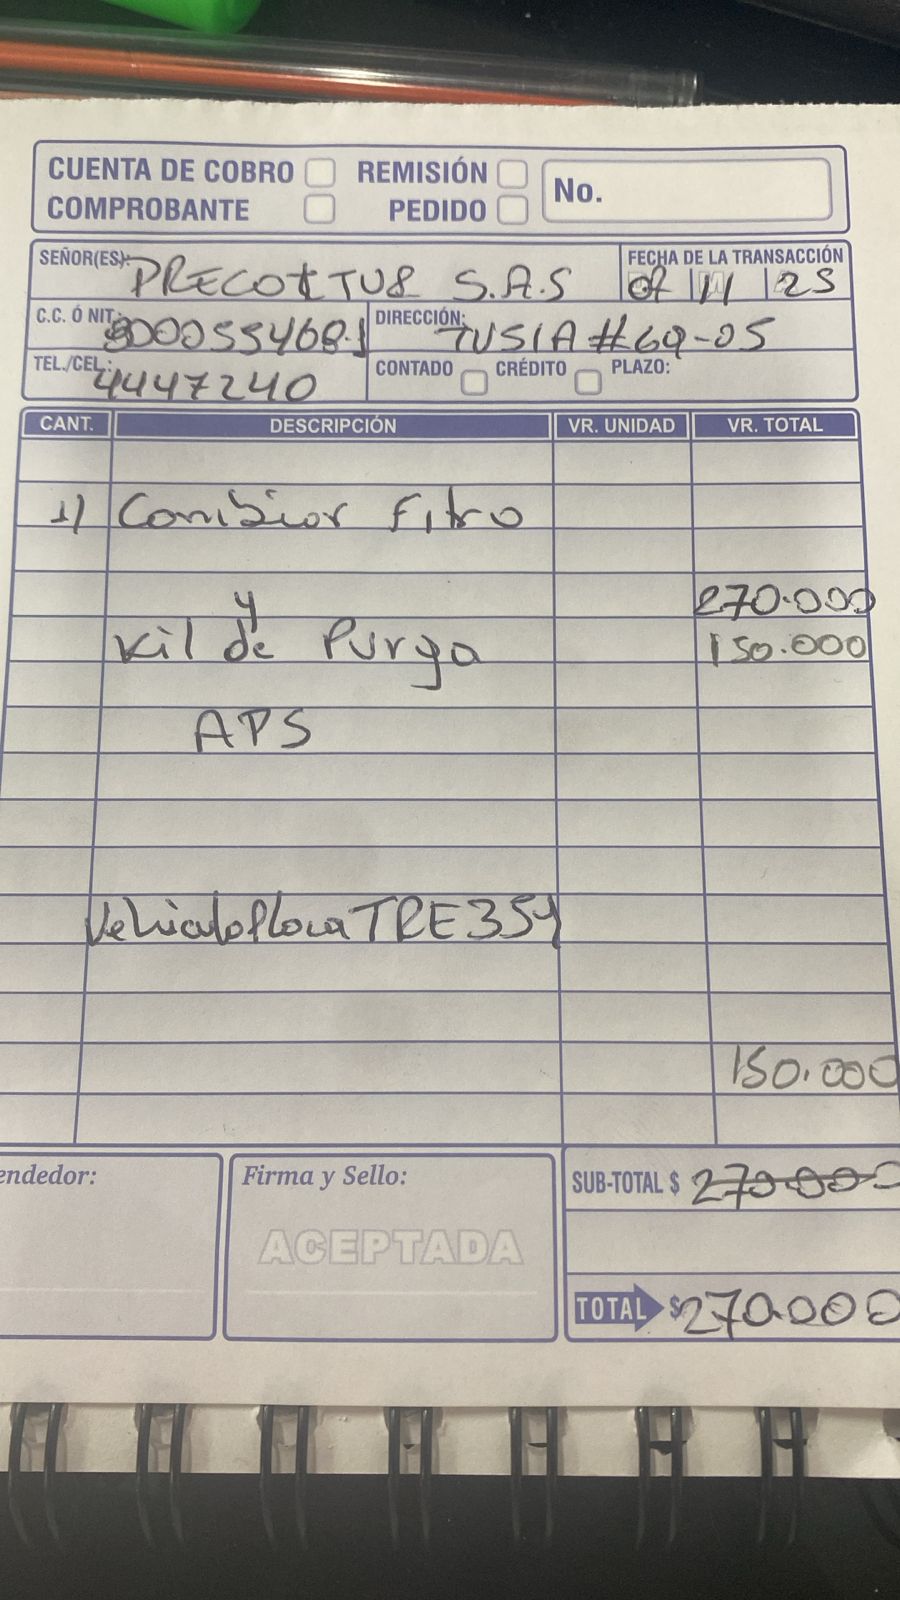 CUENTA DE COBRO REMISIÓN
COMPROBANTE PEDIDO
No.
SEÑOR(ES): S.A.S
FECHA DE LA TRANSACCIÓN
11 25
C.C. Ó NIT:
DIRECCIÓN: #69-05
TEL./CEL.: 4447240
CONTADO CRÉDITO PLAZO:
CANT. DESCRIPCIÓN VR. UNIDAD VR. TOTAL
1) Cambiar Fitro
y 270.000
Kit de Purga 150.000
APS
Vehiculo Placa TRE354
150.000
endedor:
Firma y Sello:
ACEPTADA
SUB-TOTAL $ 270.000
TOTAL $ 270.000